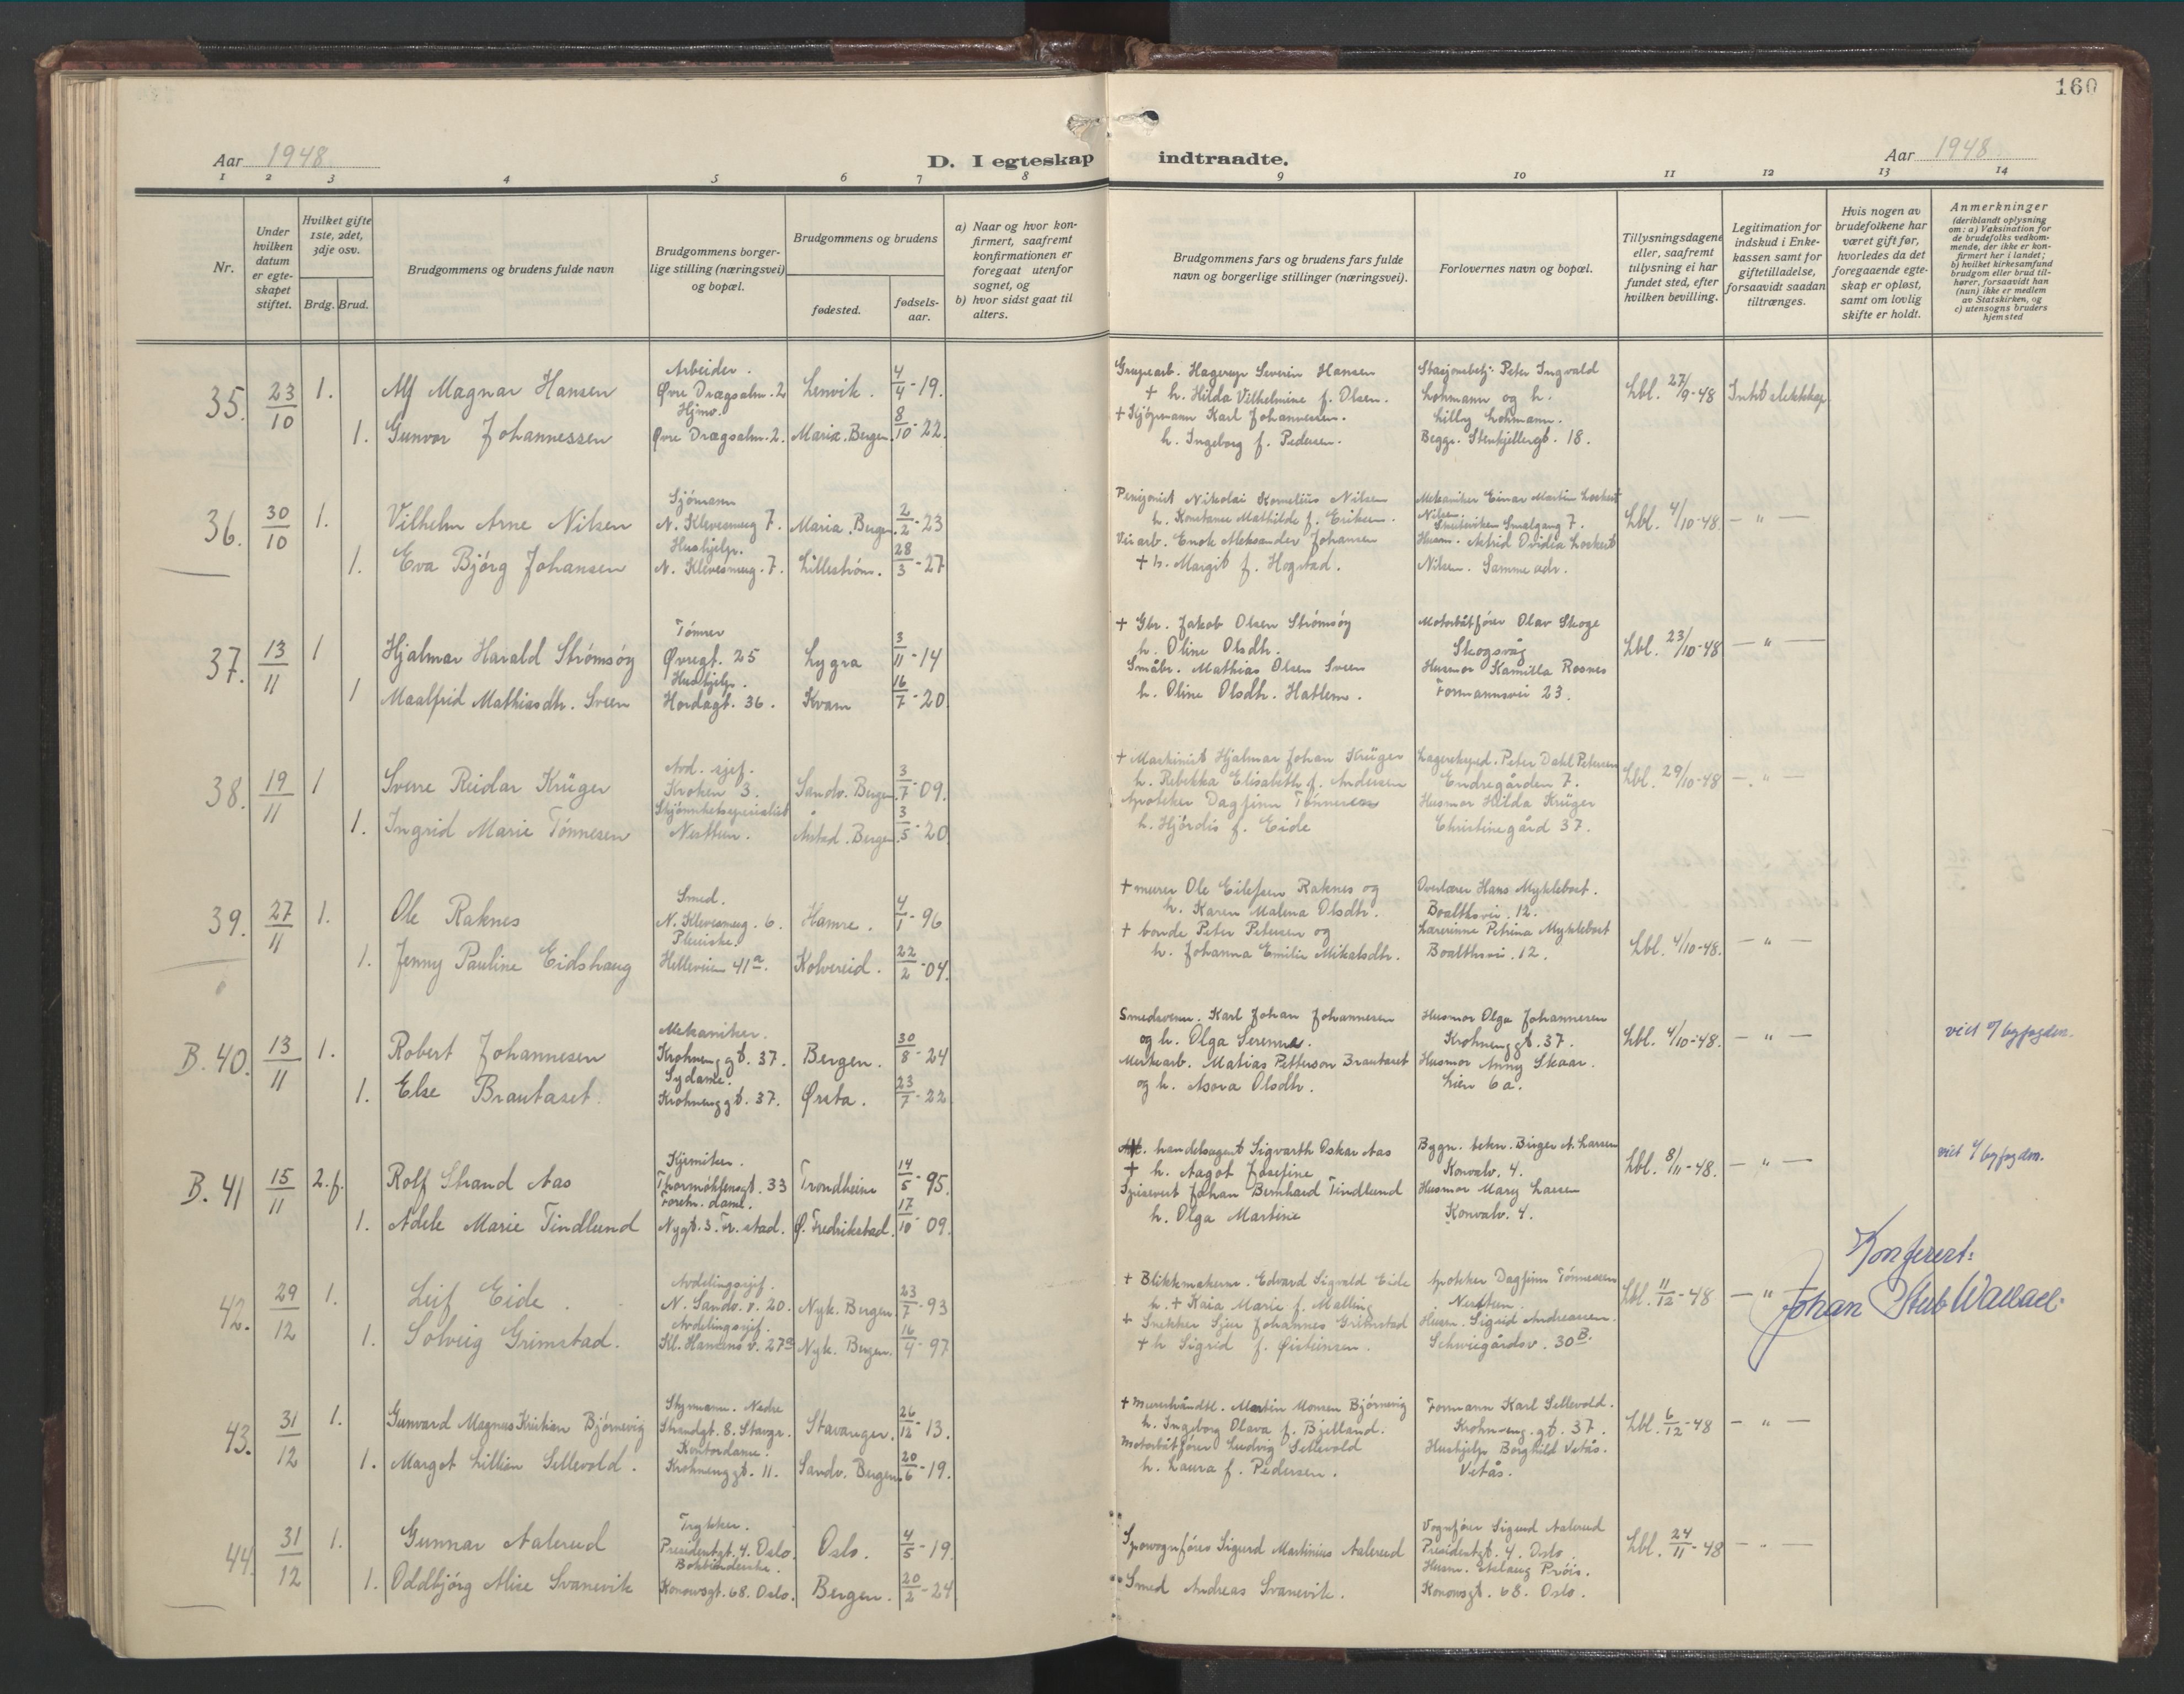 160
Aar 1948
D. I egteskap indtraadte.
Aar 1948
1 2 3 4 5 6 7 8 9 10 11 12 13 14
Nr.
Under hvilken datum er egte-skapet stiftet.
Hvilket gifte 1ste, 2det, 3dje osv.
Brdg. Brud.
Brudgommens og brudens fulde navn
Brudgommens borger-lige stilling (næringsvei) og bopæl.
Brudgommens og brudens
fødested.
fødsels-aar.
a) Naar og hvor kon-firmert, saafremt konfirmationen er foregaat utenfor sognet, og
b) hvor sidst gaat til alters.
Brudgommens fars og brudens fars fulde navn og borgerlige stillinger (næringsvei).
Forlovernes navn og bopæl.
Tillysningsdagene eller, saafremt tillysning ei har fundet sted, efter hvilken bevilling.
Legitimation for indskud i Enke-kassen samt for giftetilladelse, forsaavidt saadan tiltrænges.
Hvis nogen av brudefolkene har været gift før, hvorledes da det foregaaende egte-skap er opløst, samt om lovlig skifte er holdt.
Anmerkninger
(deriblandt oplysning om: a) Vaksination for de brudefolks vedkom-mende, der ikke er kon-firmert her i landet; b) hvilket kirkesamfund brudgom eller brud til-hører, forsaavidt han (hun) ikke er medlem av Statskirken, og c) utensogns bruders hjemsted
35. 23/10 1. Alf Magnar Hansen
Arbeider.
Øvre Dragsalm. 2 Lenvik. 4/4-19.
Hjmv.
1. Gunvor Johannessen Øvre Dragsalm. 2. Maria. Bergen. 8/10-22.
Grupearb. Hagerup Severin Hansen
+ h. Hilda Vilhelmine f. Olsen.
+ Kjøpmann Karl Johannessen.
h. Ingeborg f. Pedersen.
Stasjonsbetj. Peter Ingvald
Lohmann og h.
Lilly Lohmann.
Begge. Stenkjellergt. 18.
Lbl. 27/9-48 Intet slektskap
36. 30/10 1. Vilhelm Arne Nilsen
Sjömann
N. Klevesmug 7. Maria. Bergen. 2/2-23
Hushjelp.
1. Eva Bjørg Johansen N. Klevesmug. 7. Lillestrøm. 28/3-27
Pensjonist Nikolai Kornelius Nilsen
h. Konstanse Mathilde f. Eriksen.
Veiarb. Enok Aleksander Johansen
+ h. Margit f. Hogstad.
Mekaniker Einar Martin Lockert
Nilsen. Skuteviken Smalgang 7.
Husm. Astrid Ovidia Lockert
Nilsen. Samme adr.
Lbl. 4/10-48. — " —
37. 13/11 1 Hjalmar Harald Strømsøy
Tømrer
Øvregt. 25 Lygra 3/11-14
Hushjelp.
1 Maalfrid Mathiasdtr. Sveen Hordagt. 36. Kvam 16/7-20
+ Gbr. Jakob Olsen Strømsøy
h. Oline Olsdtr.
Småbr. Mathias Olsen Sveen
h. Oline Olsdtr. Hatlem.
Motorbåtfører Olav Skoge
Skogsvåg
Husmor Kamilla Rosnes
Formannsvei 23.
Lbl. 23/10-48 — " —
38. 19/11 1 Sverre Reidar Krüger
Avd. sjef.
Kroken 3. Sandv. Bergen. 3/7-09.
Skjønnhetsspesialist
1. Ingrid Marie Tönnesen Nesttun. Årstad. Bergen. 3/5-20
+ Maskinist Hjalmar Johan Krüger
h. Rebekka Elisabeth f. Andersen
Apoteker Dagfinn Tønnesen
h. Hjördis f. Eide
Lagereksped. Peter Dahl Petersen
Endregården 7.
Husmor Hilda Krüger
Christinegård 37.
Lbl. 29/10-48 — " —
39. 27/11 1. Ole Raknes
Smed.
N. Klevesmug. 6. Hamre. 4/1-96
Pleierske.
1. Jenny Pauline Eidshaug Helleveien 41a. Kolvereid. 22/2-04.
+ murer Ole Eilefsen Raknes og
h. Karen Malena Olsdtr.
+ bonde Peter Petersen og
h. Johanna Emilie Mikalsdtr.
Overlærer Hans Myklebost.
Boalthsvei. 12.
Lærerinne Petrina Myklebost
Boalthsvei. 12.
Lbl. 4/10-48. — " —
B. 40. 13/11 1. Robert Johannesen
Mekaniker.
Krohnenggt. 37. Bergen. 30/8-24
Sydame.
1. Else Brautaset. Krohnenggt. 37. Ørsta. 23/7-22
Smedsvenn. Karl Johan Johannesen
og h. Olga Serenna.
Merkearb. Matias Petterson Brautaset
og h. Asora Olsdtr.
Husmor Olga Johannesen
Krohnenggt. 37.
Husmor Anny Skaar.
Lien 6a.
Lbl. 4/10-48. — " — viet v/ byfogden.
B. 41 15/11 2.f. Rolf Strand Aas
Kjemiker.
Thormøhlensgt. 33 Trondheim 14/5-95.
Forretn. dame.
1. Adele Marie Tindlund Nygt. 3. Fr.stad. Ø. Fredrikstad. 17/10-09.
handelsagent Sigvarth Oskar Aas
+ h. Aagot Josefine
Spisevert Johan Bernhard Tindlund
h. Olga Martine
Bygn. tekn. Birger A. Larsen
Konvalv. 4.
Husmor Mary Larsen
Konvalv. 4.
Lbl. 8/11-48. — " — viet v/ byfogden.
Konferert:
Johan Stub Wallace.
42. 29/12 1. Leif Eide.
Avdelingssjef.
N. Sandv. v. 20. Nyk. Bergen 23/7-93
Avdelingssjef.
1. Solveig Grimstad. Kl. Hansens v. 27a Nyk. Bergen. 16/4-97
+ Blikkmakerm. Edvard Sigvald Eide
h. + Kaia Marie f. Malling
+ Snekker Sjur Johannes Grimstad
+ h Sigrid f. Øisteinsen.
Apoteker Dagfinn Tönnesen
Nesttun.
Husm. Sigrid Andreassen.
Schweigårdsv. 30B.
Lbl. 11/12-48 — " —
43. 31/12 1. Gunvard Magnus Kristian Bjørnevig
Styrmann. Nedre
Strandgt. 8. Stavgr. Stavanger. 26/12-13.
Kontordame.
1. Margot Lillian Sellevold. Krohnenggt. 11. Sandv. Bergen 20/6-19.
+ Murerhåndtl. Martin Monsen Bjørnevig
h. Ingeborg Olava f. Bjelland.
Motorbåtfører Ludvig Sellevold
h. Laura f. Pedersen.
Formann Karl Sellevold.
Krohneng.gt. 37.
Hushjelp Borghild Vetås.
Vetås.
Lbl. 6/12-48 — " —
44. 31/12 1. Gunnar Aalerud
Trykker.
Presidentgt. 4. Oslo. Oslo. 4/5-19.
Bokbinderske.
1. Oddbjørg Alise Svanevik Konowsgt. 68. Oslo. Bergen. 20/2-24
Sporvognfører Sigurd Martinius Aalerud
Smed Andreas Svanevik.
Vognfører Sigurd Aalerud
Presidentgt. 4. Oslo.
Husm. Etslaug Prøis.
Konowsgt. 68. Oslo.
Lbl. 24/11-48 — " —